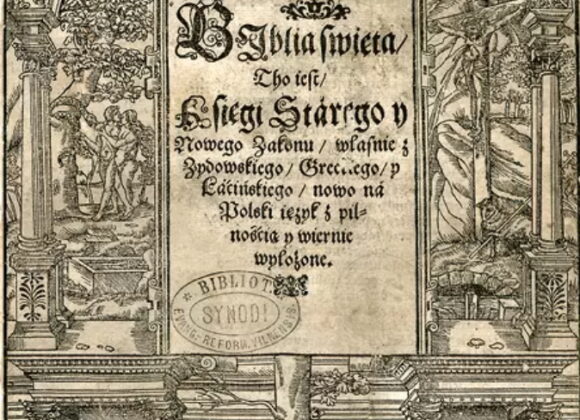 Biblia swięta/
Tho iest/
Księgi Stárego y
Nowego Zakonu/ własnie z
Zydowskiego/ Greckiego/ y
Láćińskiego/ nowo ná
Polski ięzyk z pil-
nośćią y wiernie
wyłożone.
BIBLIOT.
SYNODI
EVANG. REFORM. VILNENSIS